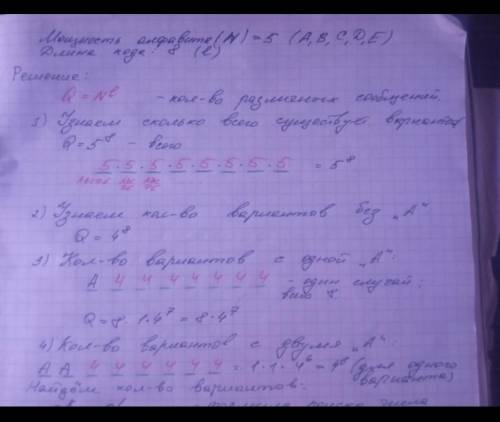 Мощность алфавита (N) = 5 (A, B, C, D, E)
Длина кода: 8 (l)
Решение:
Q = N^l - кол-во различных сообщений.
1) Узнаем сколько всего существует вариантов
Q = 5^8 - всего
5 · 5 · 5 · 5 · 5 · 5 · 5 · 5 = 5^8
2) Узнаем кол-во вариантов без „А“
Q = 4^8
3) Кол-во вариантов с одной „А“:
A 4 4 4 4 4 4 4 - один случай;
всего 8
Q = 8 · 1 · 4^7 = 8 · 4^7
4) Кол-во вариантов с двумя „А“:
A A 4 4 4 4 4 4 = 1 · 1 · 4^6 = 4^6 (для одного
варианта)
Найдём кол-во вариантов: